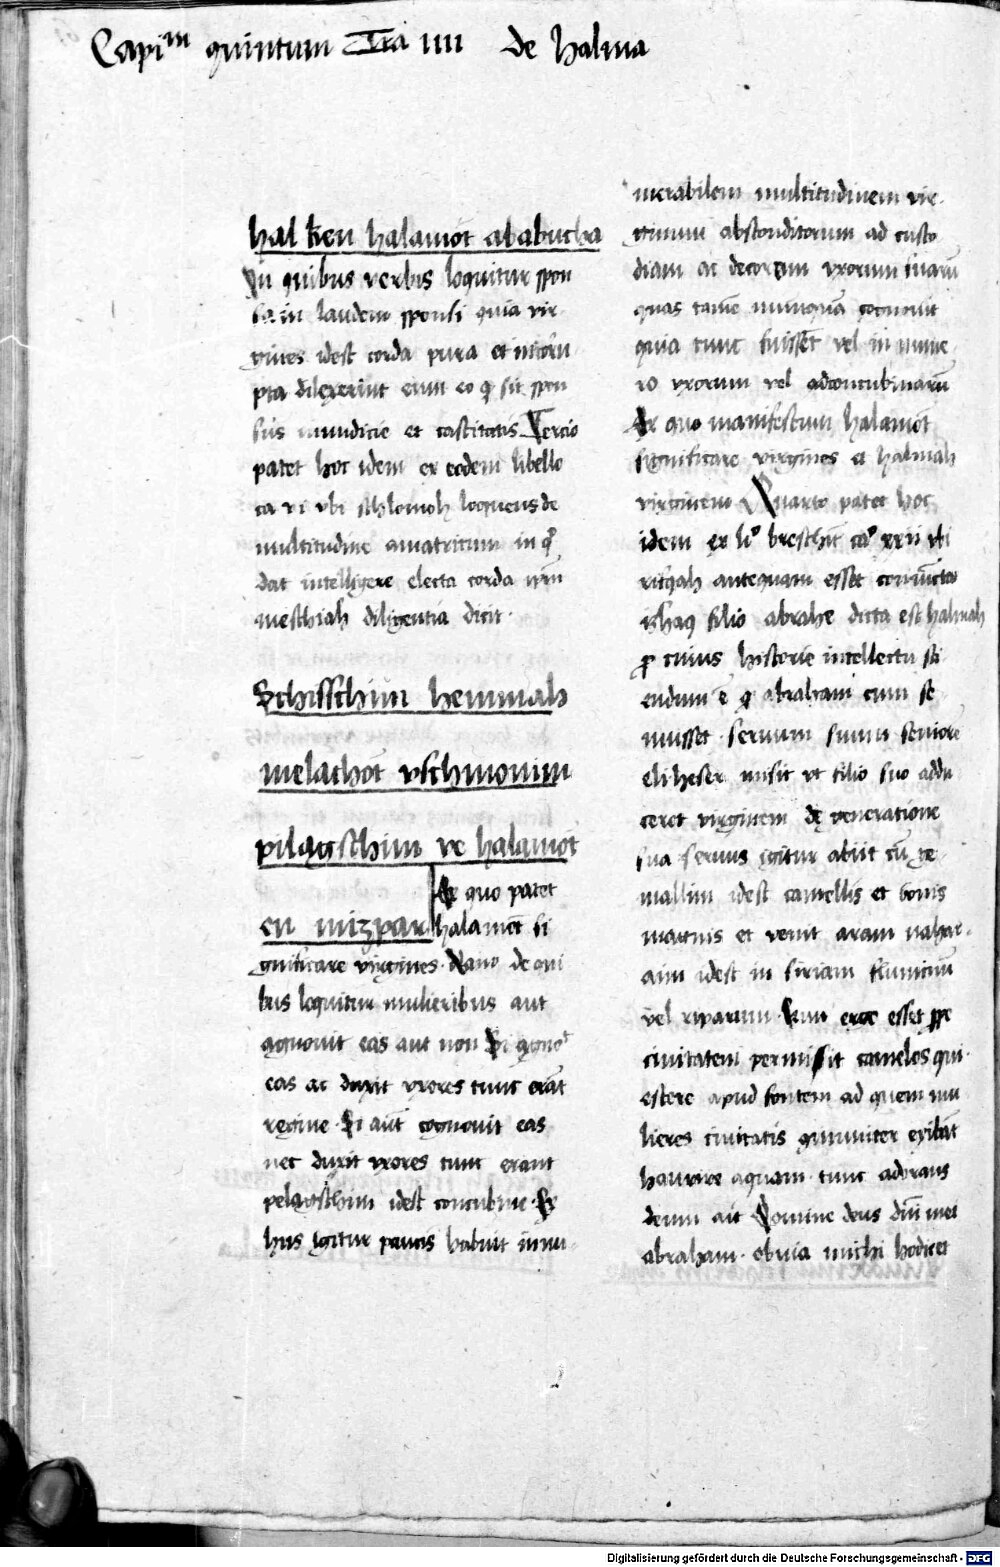 Capi^m quintum Tra IIII de halma
hal ken halamot ahabucha
In quibus verbis loquitur spon
sa in laudem sponsi quia vir
gines idest corda pura et incoru
pta dilexerint eum eo q sit spon
sus mundicie et castitatis Tercio
patet hoc idem ex eodem libello
ca vi vbi schlomoh loquens de
multitudine amatricum in q
dat intelligere electa corda nrm
meschiah diligentia dicit.
Schisschim hemmah
melachot vschmonim
pilagschim ve halamot
en mizpar Ex quo patet
halamot si
gnificare virgines. Nam de qui
bus loquitur mulieribus aut
cognouit eas aut non Si cogno^t
eas ac duxit vxores tunc erāt
regine. Si aut cognouit eas
nec duxit vxores tunc erant
pelagschim idest concubine. Ex
hiis igitur paucis habuit innu
merabilem multitudinem vir
ginum absconditorum ad custo
diam ac decorem vxorum suarū
quas tamē nunquā cognouit
quia tunc fuissēt vel in nume
ro vxorum vel adconcubinarū
Ex quo manifestum halamot
significare virgines et halmah
virginem Quarto patet hoc
idem ex li^o breschit ca^o xxiiii vbi
rifqah antequam esset coniūcta
ishaq filio abrahe dicta est halmah
pro cuius historie intellectu sci
endum ē q abraham cum se
nuisset. seruum suum seniorē
eliheser misit vt filio suo addu
ceret virginem de veneratione
sua seruus igitur abiit cū ge
mallim idest camellis et bonis
magnis et venit aram nahar
aim idest in siriam fluminū
vel riparum. Cum ergo esset ppe
ciuitatem permisit camelos qui
estere apud fontem ad quem mu
lieres ciuitatis communiter exibāt
haurire aquam. tunc adorans
deum ait Domine deus dnī mei
abraham. obuia michi hodie et
Digitalisierung gefördert durch die Deutsche Forschungsgemeinschaft - DFG